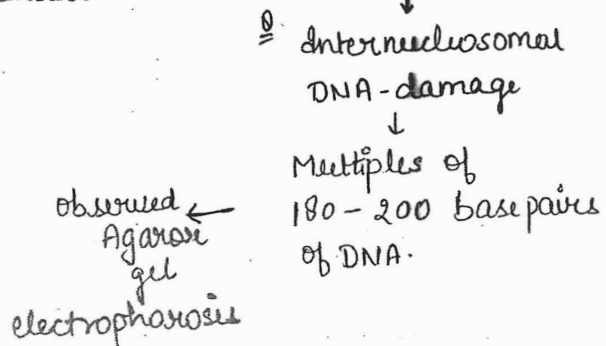 Q.
Internucleosomal
DNA-damage
↓
Multiples of
180-200 base pairs
of DNA.
observed ←
Agarose
gel
electrophorosis